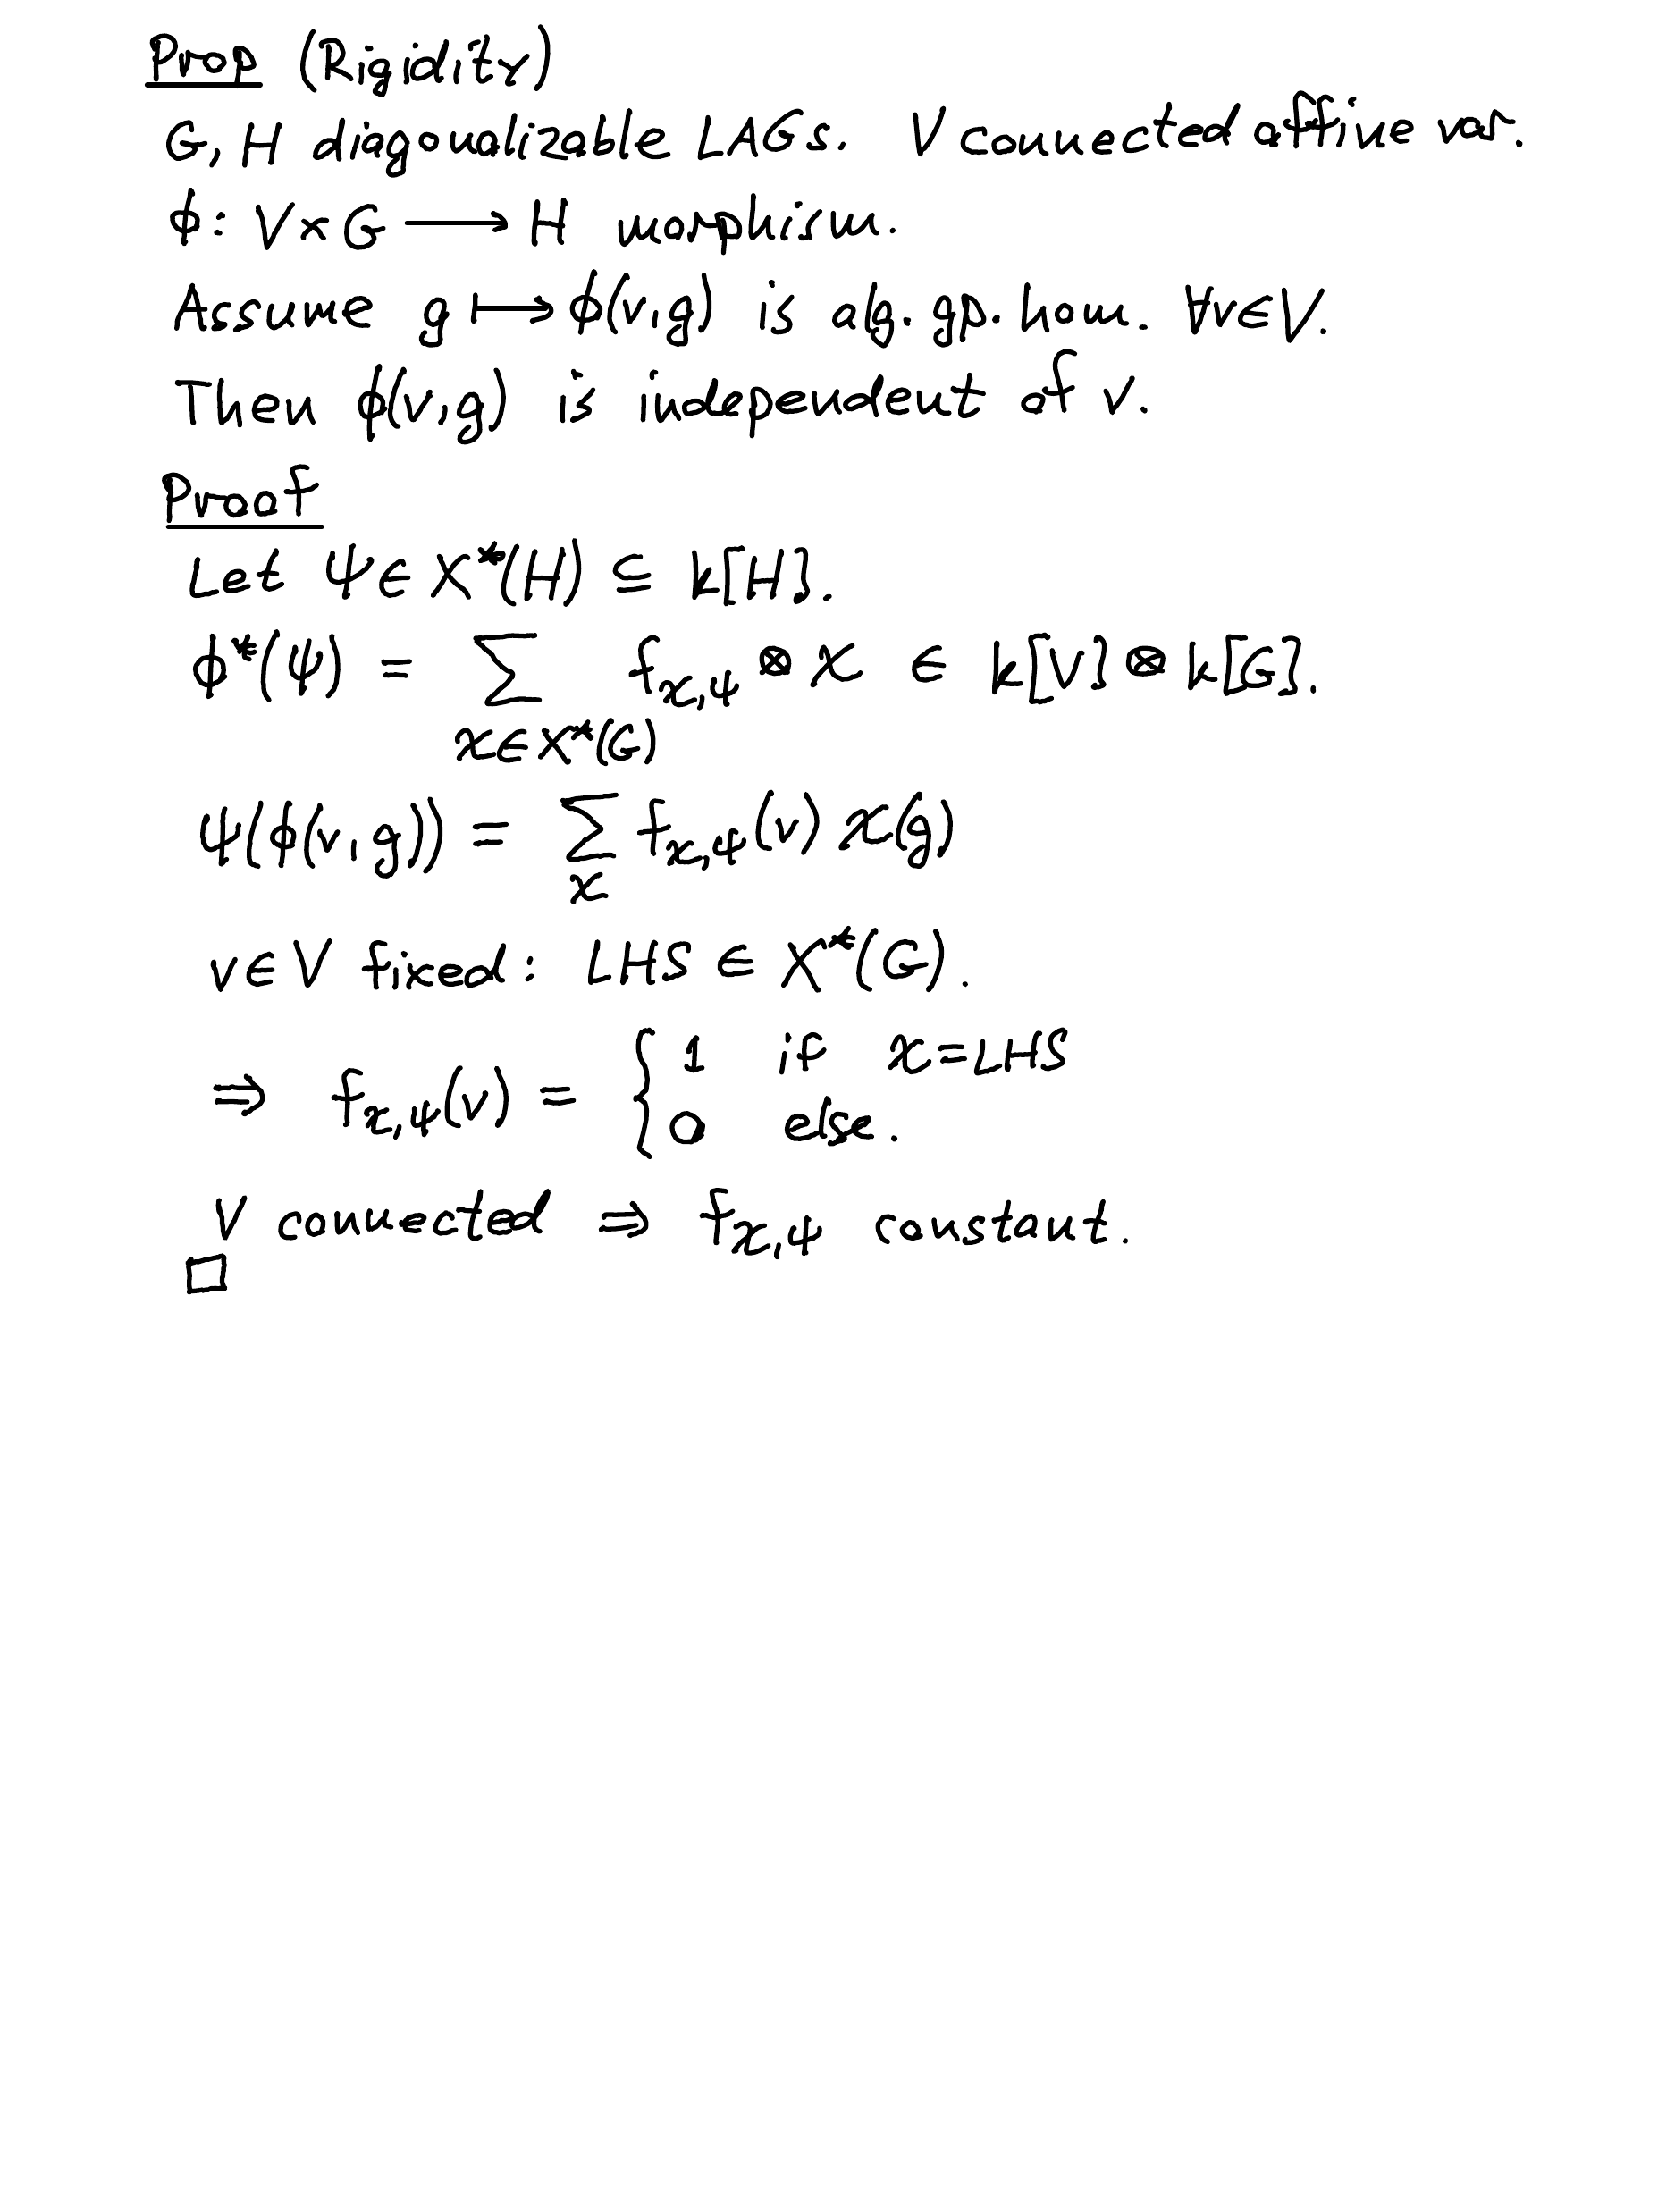 Prop (Rigidity)
G, H diagonalizable LAGs. V connected affine var.
ϕ: V×G ⟶ H morphism.
Assume g ⟼ ϕ(v,g) is alg. gp. hom. ∀v∈V.
Then ϕ(v,g) is independent of v.
Proof
Let ψ ∈ X*(H) ⊆ k[H].
ϕ*(ψ) = ∑_{χ∈X*(G)} f_{χ,ψ} ⊗ χ ∈ k[V] ⊗ k[G].
ψ(ϕ(v,g)) = ∑_χ f_{χ,ψ}(v) χ(g)
v∈V fixed: LHS ∈ X*(G).
⇒ f_{χ,ψ}(v) = { 1 if χ=LHS
0 else.
V connected ⇒ f_{χ,ψ} constant.
□